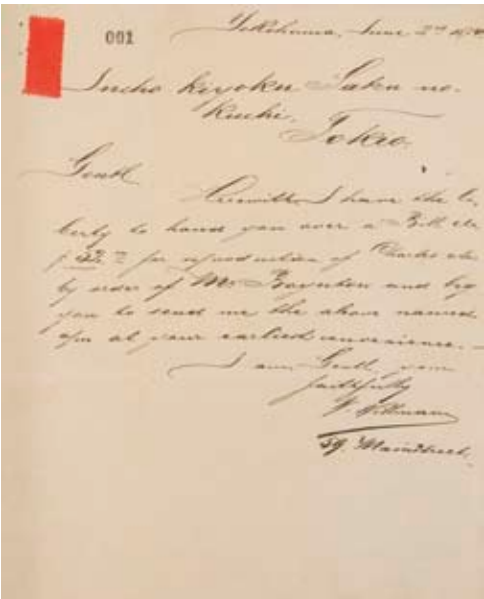 001
Yokohama, June 2nd
Insho Kiyoku Yaku no.
Kuchi.
Tokio.
Gentl
Herewith I have the li,
berty to hand you over a Bill
for reproduction of Charts
by order of Mr. Boynton and beg
you to send me the above named
at your earliest convenience. –
I am Gentl. your
faithfully
59. Mainstreet.